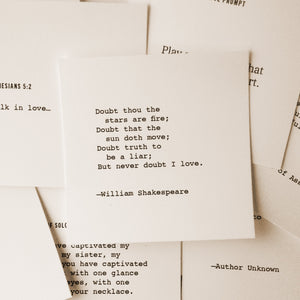 PROMPT
ESIANS 5:2
Play
hat
rt.
lk in love…
Doubt thou the
stars are fire;
Doubt that the
sun doth move;
Doubt truth to
be a liar;
But never doubt I love.
—William Shakespeare
of As
F SOLO
ve captivated my
my sister, my
ou have captivated
with one glance
eyes, with one
your necklace.
—Author Unknown